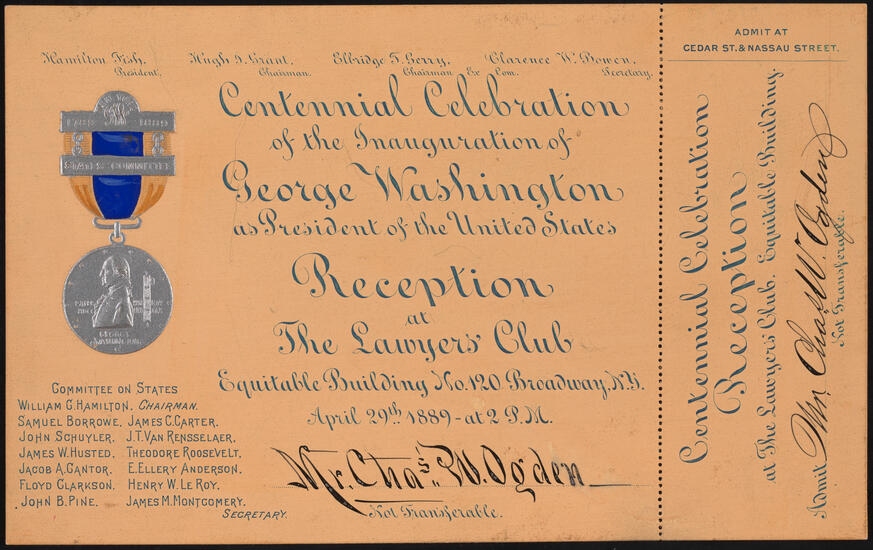 Hamilton Fish, Hugh J. Grant, Elbridge T. Gerry, Clarence W. Bowen,
President. Chairman. Chairman Ex Com. Secretary.
Centennial Celebration
of the Inauguration of
George Washington
as President of the United States
Reception
at
The Lawyers' Club
Equitable Building No. 120 Broadway, N.Y.
April 29th 1889 - at 2 P.M.
Mr. Chas. W. Ogden
Not Transferable.
1789 1889
STATES COMMITTEE
GEORGE
WASHINGTON
COMMITTEE ON STATES
WILLIAM G. HAMILTON, CHAIRMAN.
SAMUEL BORROWE, JAMES C. CARTER.
JOHN SCHUYLER, J.T. VAN RENSSELAER.
JAMES W. HUSTED. THEODORE ROOSEVELT.
JACOB A. CANTOR. E. ELLERY ANDERSON.
FLOYD CLARKSON. HENRY W. LE ROY.
JOHN B. PINE. JAMES M. MONTGOMERY.
SECRETARY.
ADMIT AT
CEDAR ST. & NASSAU STREET.
Centennial Celebration
Reception
at The Lawyers' Club. Equitable Building.
Admit Mr. Chas. W. Ogden
Not Transferable.